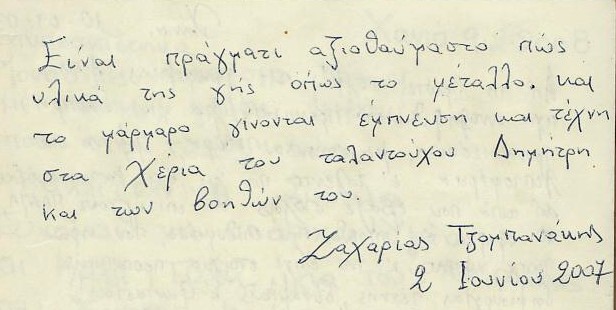 Είναι πράγματι αξιοθαύμαστο πώς
υλικά της γης όπως το μέταλλο και
το μάρμαρο γίνονται έμπνευση και τέχνη
στα χέρια του ταλαντούχου Δημήτρη
και των βοηθών του.
Ζαχαρίας Τζομπανάκης
2 Ιουνίου 2007